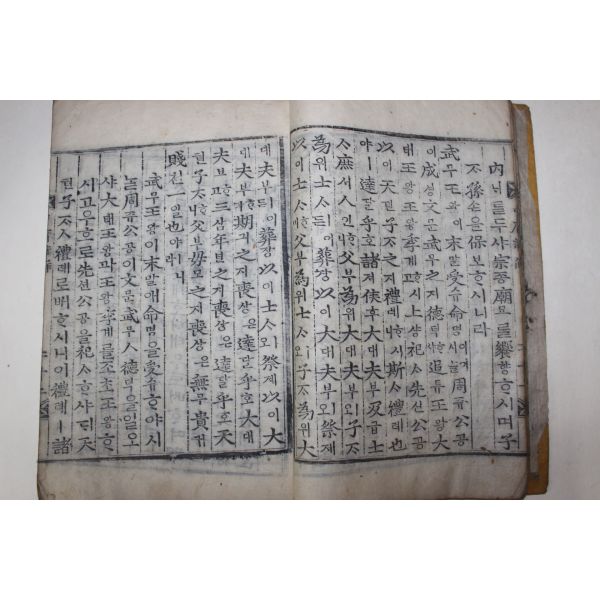 內ᄂᆡ를두샤宗종廟묘를饗향ᄒᆞ시며子
ᄌᆞ孫손을保보ᄒᆞ시니라
武무王왕이末말受슈命명이어시ᄂᆞᆯ周쥬公공
이成셩文문武무之지德덕ᄒᆞ샤追튜王왕大
태王왕王왕季계ᄒᆞ시고上샹祀ᄉᆞ先션公공
以이天텬子ᄌᆞ之지禮례ᄒᆞ시니斯ᄉᆞ禮례也
야ㅣ達달乎호諸져侯후大대夫부及급士
ᄉᆞ庶셔人인ᄒᆞ니父부爲위大대夫부ㅣ오子ᄌᆞ
爲위士ᄉᆞㅣ어든葬장以이大대夫부ㅣ오祭졔
以이士ᄉᆞᄒᆞ며父부爲위士ᄉᆞㅣ오子ᄌᆞ爲위大
대夫부ㅣ어든葬장以이士ᄉᆞㅣ오祭졔以이大
대夫부ᄒᆞ며期긔之지喪상은達달乎호大대
夫부ᄒᆞ고三삼年년之지喪상은達달乎호天
텬子ᄌᆞᄒᆞ니父부母모之지喪상은無무貴귀
賤쳔一일也야ㅣ니라
武무王왕이末말애命명을受슈ᄒᆞ야시
ᄂᆞᆯ周쥬公공이文문武무ㅅ德덕을일오
샤大태王왕과王왕季계를조초王왕ᄒᆞ
시고우흐로先션公공을祀ᄉᆞᄒᆞ샤ᄃᆡ天
텬子ᄌᆞㅅ禮례로ᄡᅥᄒᆞ시니이禮례ㅣ諸